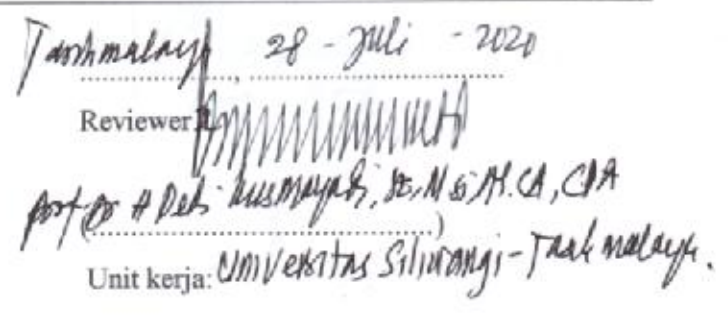 Tasikmalaya, 28 - Juli - 2020
Reviewer
Prof Dr H Dedi Kusmayadi, SE, M Si, Ak. CA, CPA
Unit kerja: Universitas Siliwangi - Tasikmalaya.